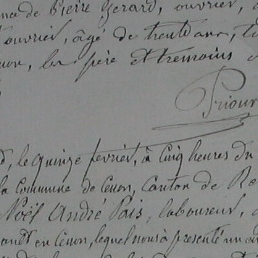 de Pierre Gerard, ouvrier,
ouvrier, âgé de trente ans,
les père et témoins
Priour
le quinze février, à cinq heures du
la Commune de Cenon, Canton de
Noël André Pais, laboureur,
en Cenon, lequel nous a présenté un